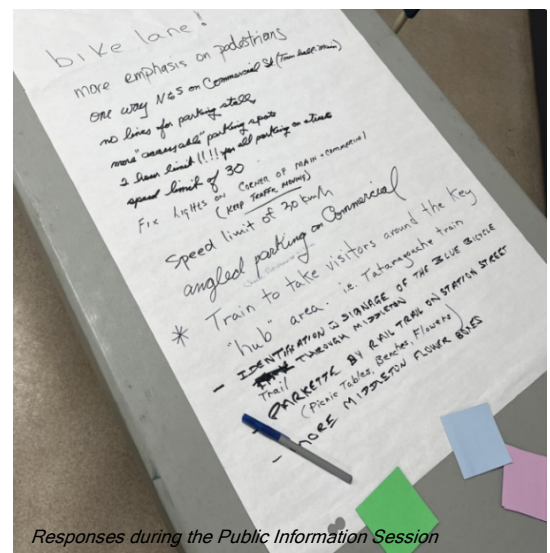 bike lane!
more emphasis on pedestrians
one way N&S on Commercial St (Town hall-main)
no lines for parking stalls
more "accessable" parking spots
2 hour limit!!!! for all parking on street
speed limit of 30
FIX LIGHTS ON CORNER OF MAIN + COMMERCIAL
(KEEP TRAFFIC MOVING)
Speed limit of 30 km/h
angled parking on Commercial
* Train to take visitors around the key
"hub" area. i.e. Tatamagouche train
- IDENTIFICATION & SIGNAGE OF THE BLUE BICYCLE
Trail THROUGH MIDDLETON
- PARKETTE BY RAIL TRAIL ON STATION STREET
(Picnic Tables, Benches, Flowers)
- MORE MIDDLETON FLOWER BOXES
Responses during the Public Information Session